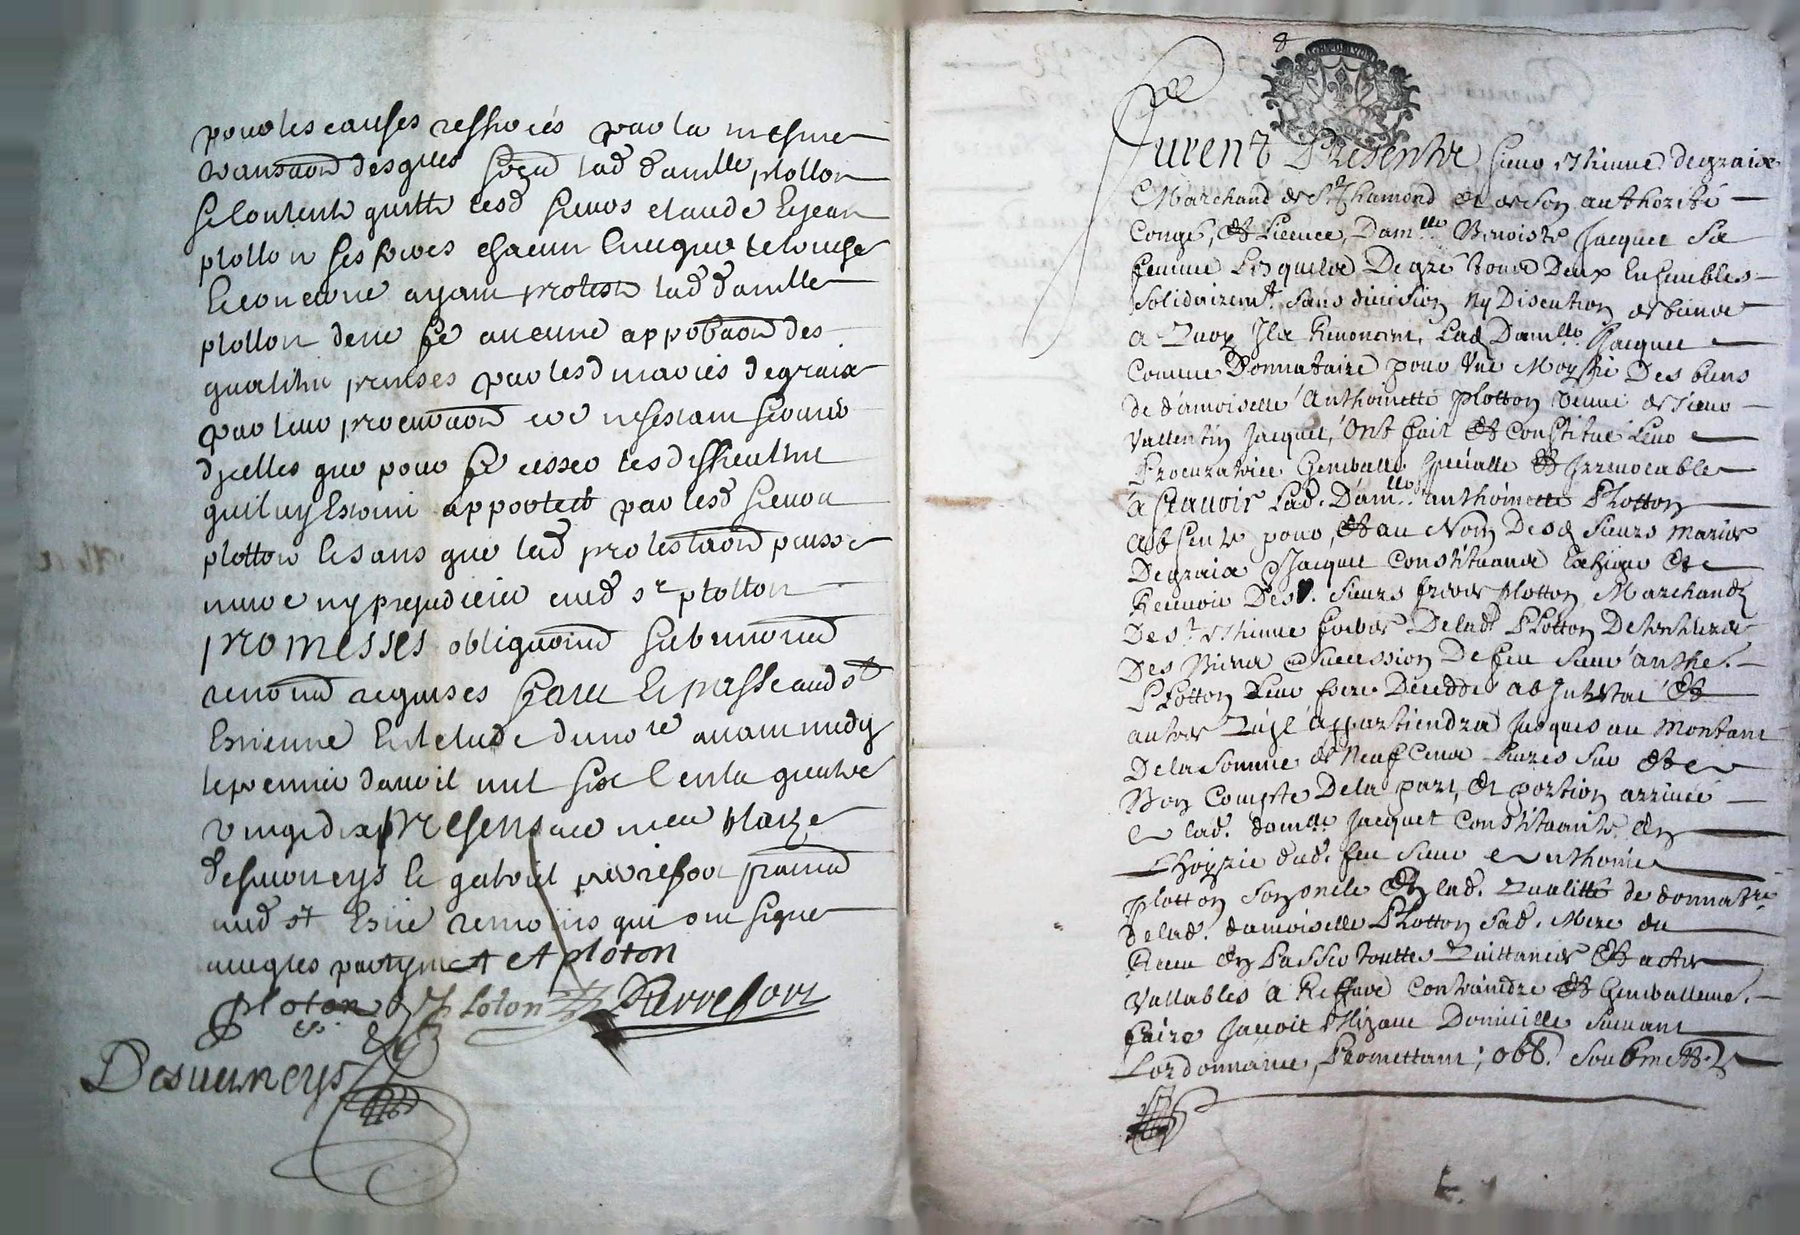 pour les causes resfroiés par la mesme
transaon desquels lad damlle plotton
se contente quitte lesd sieurs claude & jean
plotton ses freres chacun en ce que le touche
& concerne ayant protesté lad damlle
plotton de ne fe aucune approbaon des
qualités prinses par lesd mariés degraix
par leur procuraon
dicelles que pour fe cesser les difficultés
qui luy estoint apportées par lesd sieurs
plotton & sans que lad protestaon puisse
nuire ny prejudicier aud sr plotton
promesses obligaons submions
renons requises faict & passé aud st
Estienne Estude du nore avant midy
le premier davril mil six cents quatre
vingt dix presens me blaize
desverneys & gabriel pierrefort praticien
aud st Esne temoins qui ont signé
avec les partyes et A ploton
ploton ploton Pierrefort
Desverneys
Furent Presents sieur Etienne degraix
Marchand de St Chamond et de son authorité
Congé, et Licence, Damlle Benoiste Jacquet sa
femme Lesquels De gré tous Deux Ensembles
Solidairemt. sans division ny Discution de biens
a Quoy Ils Renoncent, Lad Damlle Jacquet
Comme Donnataire pour Une Moytié Des biens
de damoiselle Anthoinette Plotton veuve de sieur
Vallentin Jacquet, Ont fait et Constitué Leur
Procuratrice Generalle specialle et Irrevocable
a scavoir Lad. Damlle anthoinette Plotton
absente pour, et au Nom Desd sieurs mariés
Degraix Jacquet Constituants Exhiger et
Recevoir Desd. sieurs freres plotton Marchands
De St Etienne freres De lad. Plotton Detenteurs
Des Biens succession De feu sieur anthe.
Plotton Leur frere Decedé ab Intestat et
autres Qu'jl appartiendra Jusques au Montant
De la somme de Neuf Cents Livres sur et
Bon Compte De la part, et portion arrivée
a lad. damlle Jacquet Constituante en
Lhoyrie dud. feu sieur anthoine
plotton son oncle en lad. Qualitté de donnatre
de lad. damoiselle Plotton sad. Mere du
Receu en Passer touttes Quittances et actes
Vallables a Reffaire Contraindre et Generallemt.
faire Ellizant Domicille suivant
Lordonnance, Promettant; obb. Soubmett